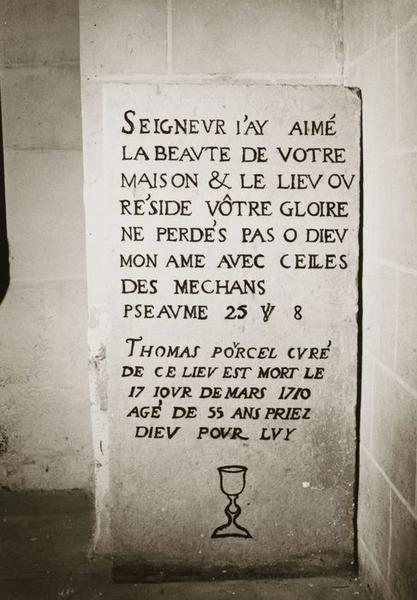 SEIGNEVR I'AY AIMÉ
LA BEAVTE DE VOTRE
MAISON & LE LIEV OV
RÉSIDE VÔTRE GLOIRE
NE PERDÉS PAS O DIEV
MON AME AVEC CELLES
DES MECHANS
PSEAVME 25 ꝟ 8
THOMAS PORCEL CVRÉ
DE CE LIEV EST MORT LE
17 IOVR DE MARS 1710
AGÉ DE 55 ANS PRIEZ
DIEV POVR LVY